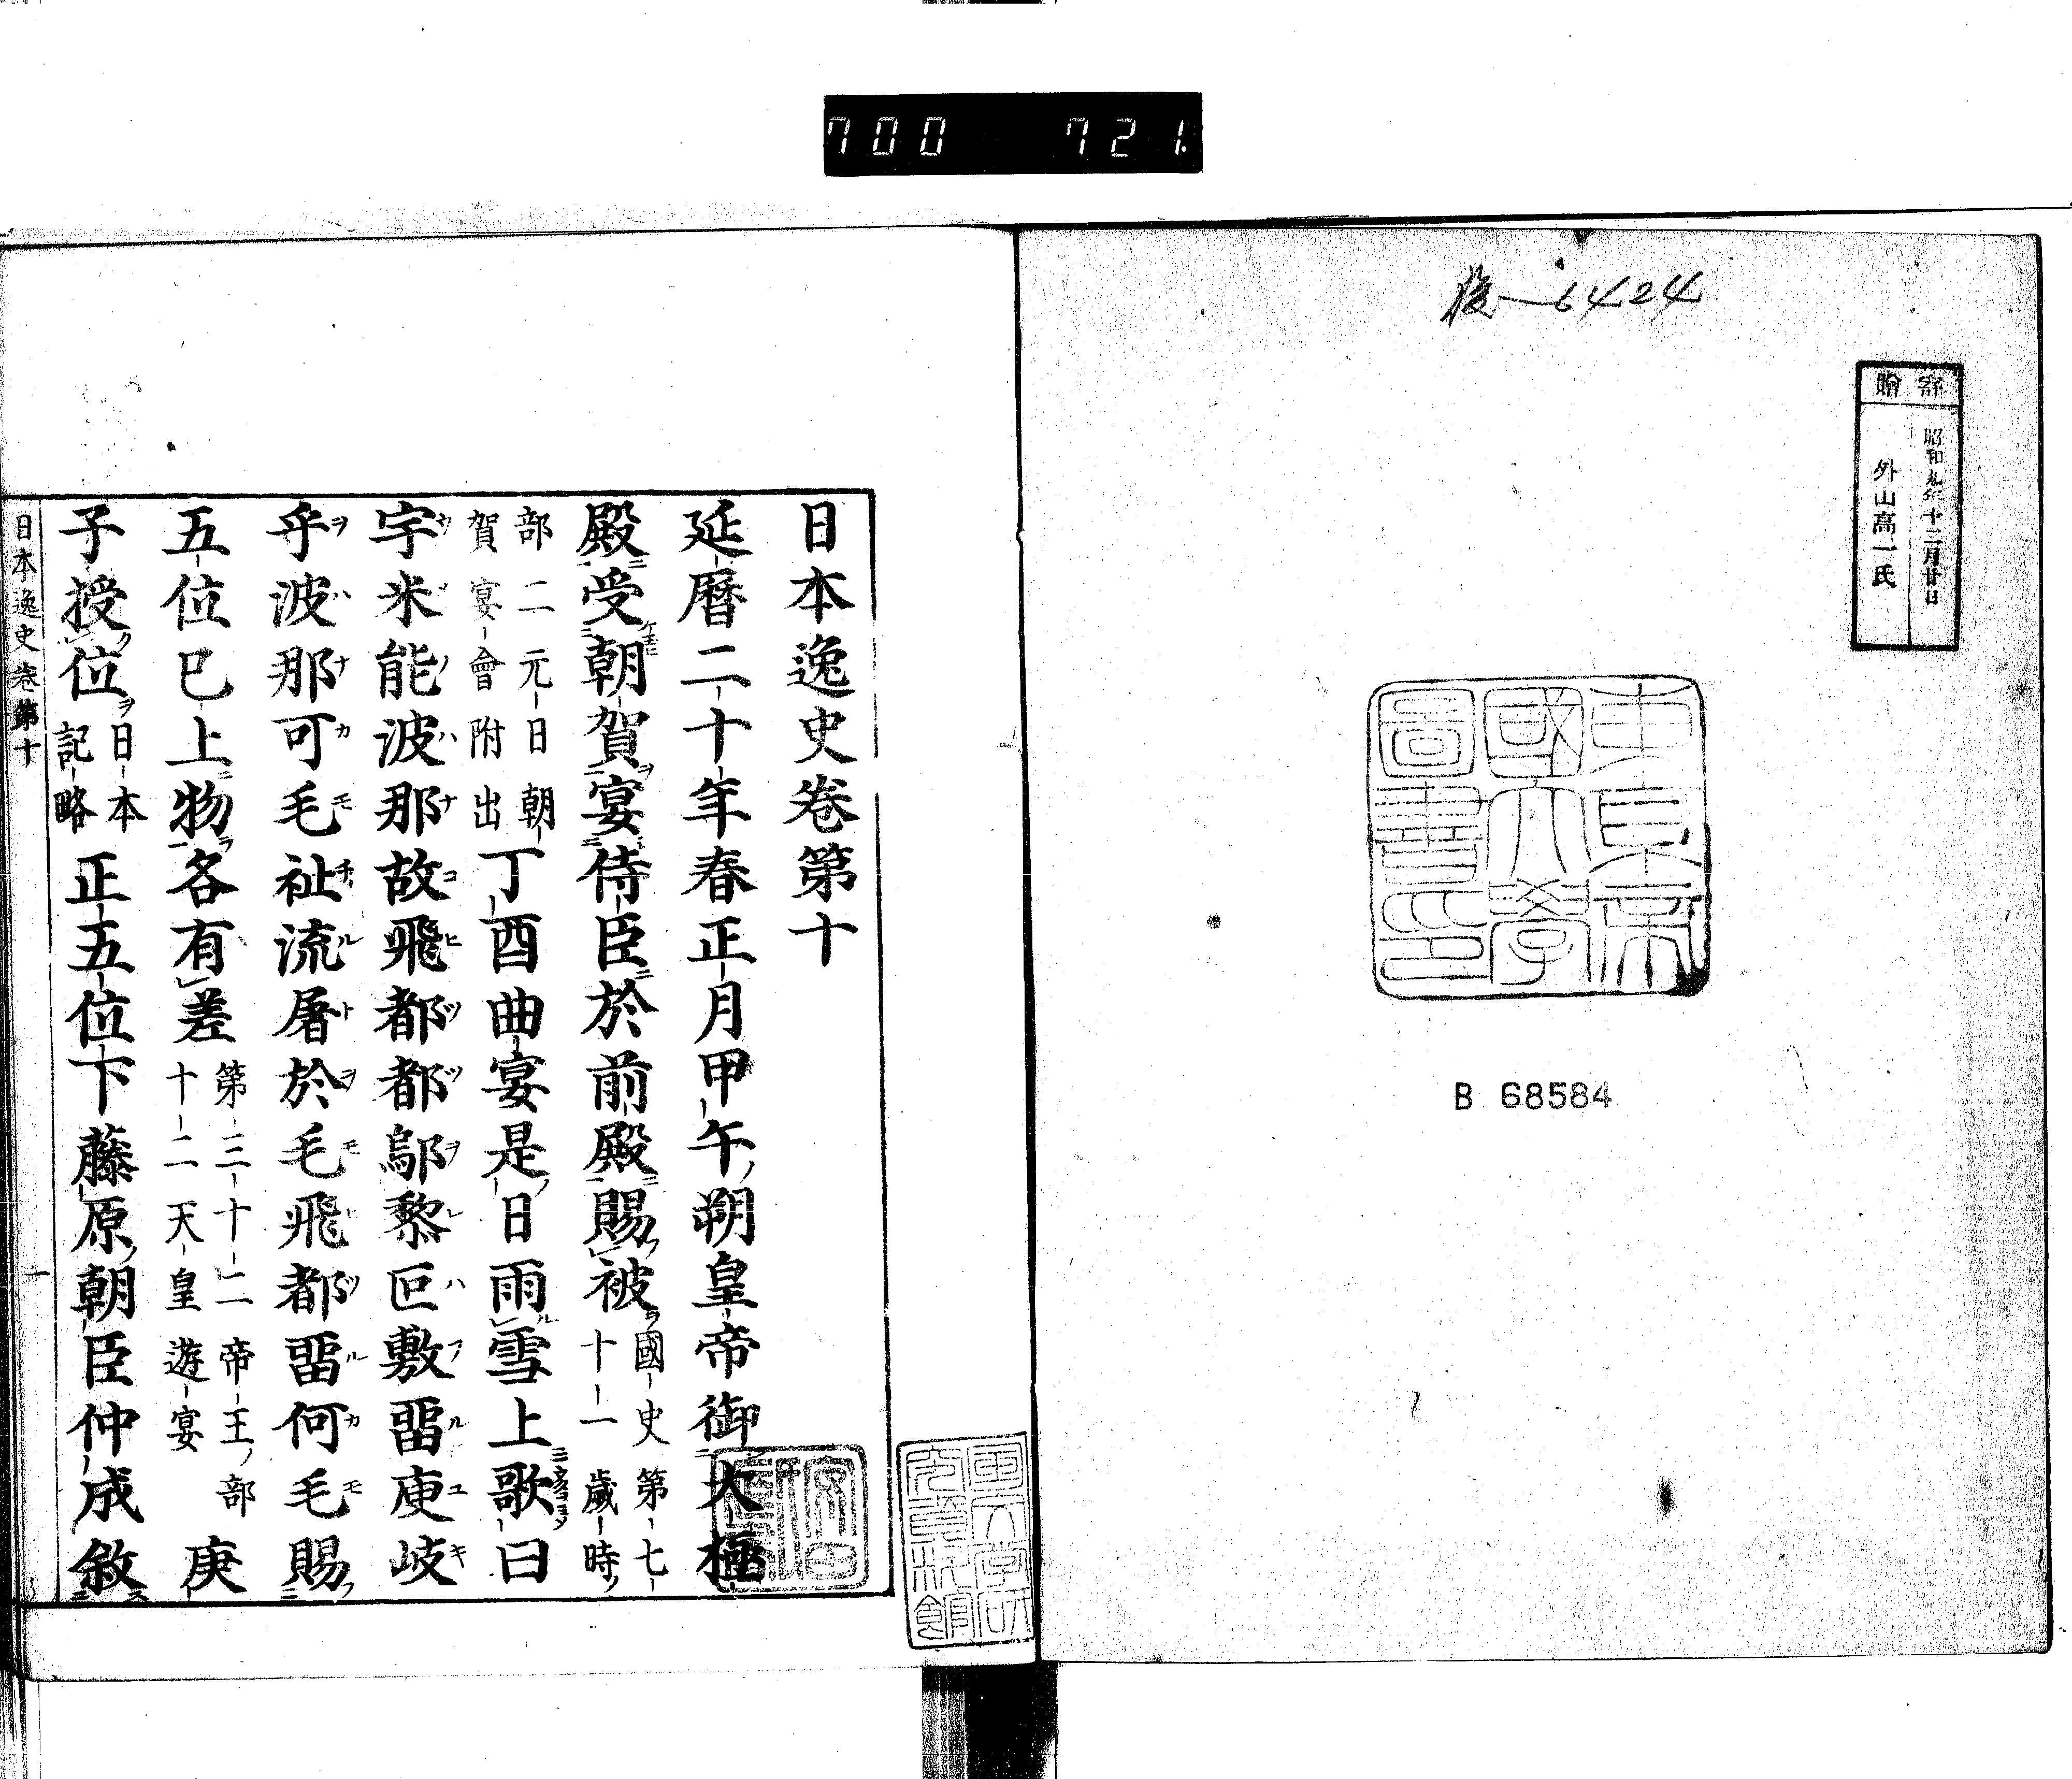 700 721
後—6424
寄贈
昭和九年十二月廿日
外山高一氏
東京帝
國大學
圖書印
B 68584
日本逸史卷第十
延曆二十年春正月甲午朔皇帝御大極
殿受朝賀宴侍臣於前殿賜被國史第七十一歲時
部二元日朝賀宴會附出丁酉曲宴是日雨雪上歌曰
宇米能波那故飛都都鄔黎叵敷畱庾岐
乎波那可毛祉流屠於毛飛都畱何毛賜
五位已上物各有差第三十二帝王部十二天皇遊宴庚
子授位日本記略正五位下藤原朝臣仲成敘
日本逸史卷第十
一